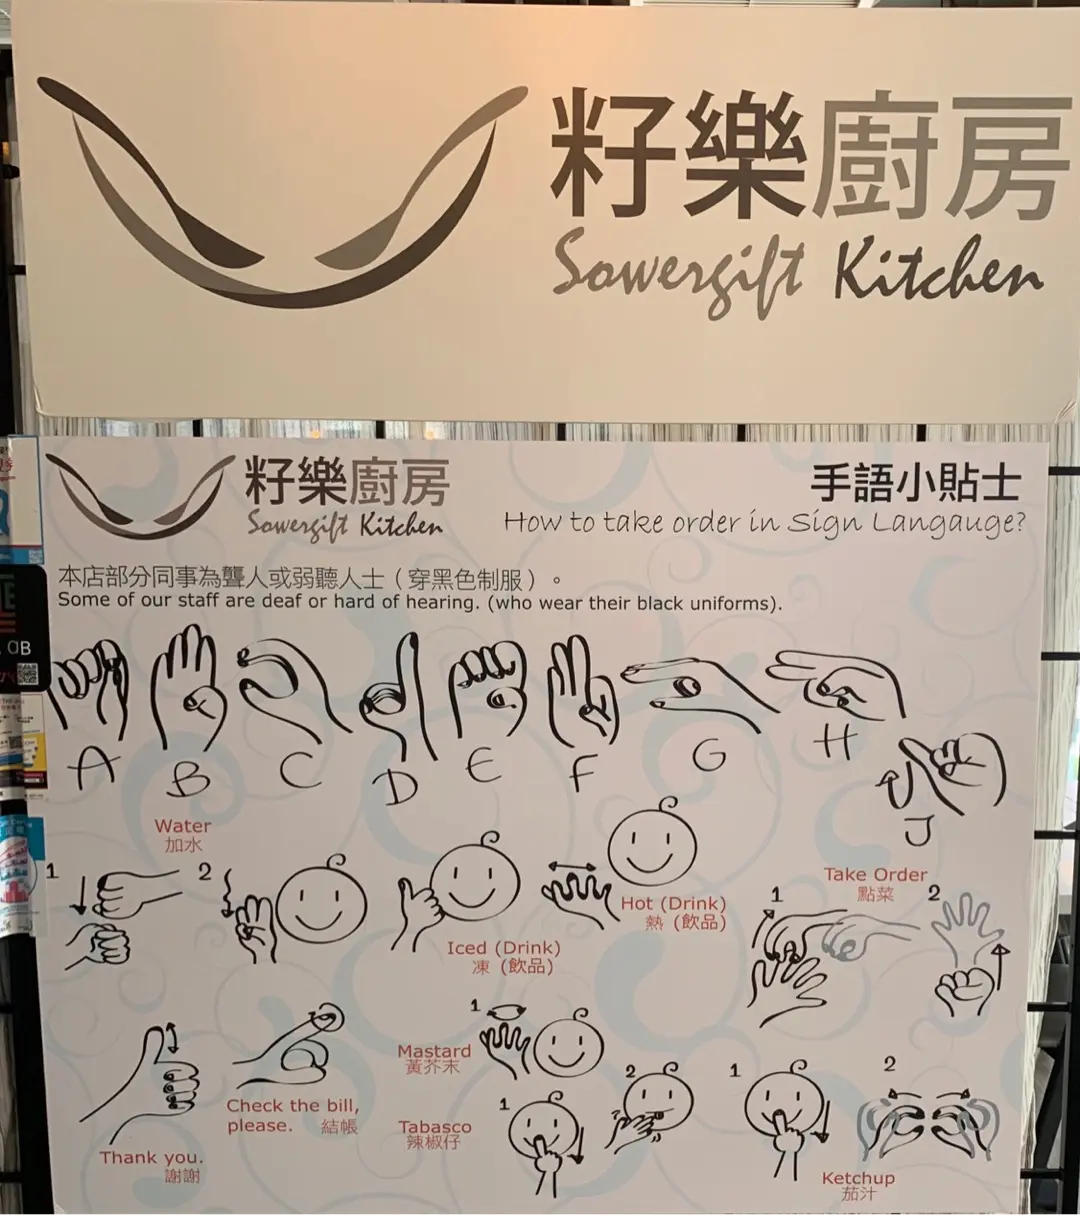 籽樂廚房
Sowergift Kitchen
籽樂廚房
Sowergift Kitchen
手語小貼士
How to take order in Sign Langauge?
本店部分同事為聾人或弱聽人士（穿黑色制服）。
Some of our staff are deaf or hard of hearing. (who wear their black uniforms).
A B C D E F G H
J
Water
加水
1 2
Iced (Drink)
凍 (飲品)
Hot (Drink)
熱 (飲品)
Take Order
點菜
1 2
Thank you.
謝謝
Check the bill,
please. 結帳
1
Mastard
黃芥末
Tabasco
辣椒仔
1 2
1 2
Ketchup
茄汁
OB